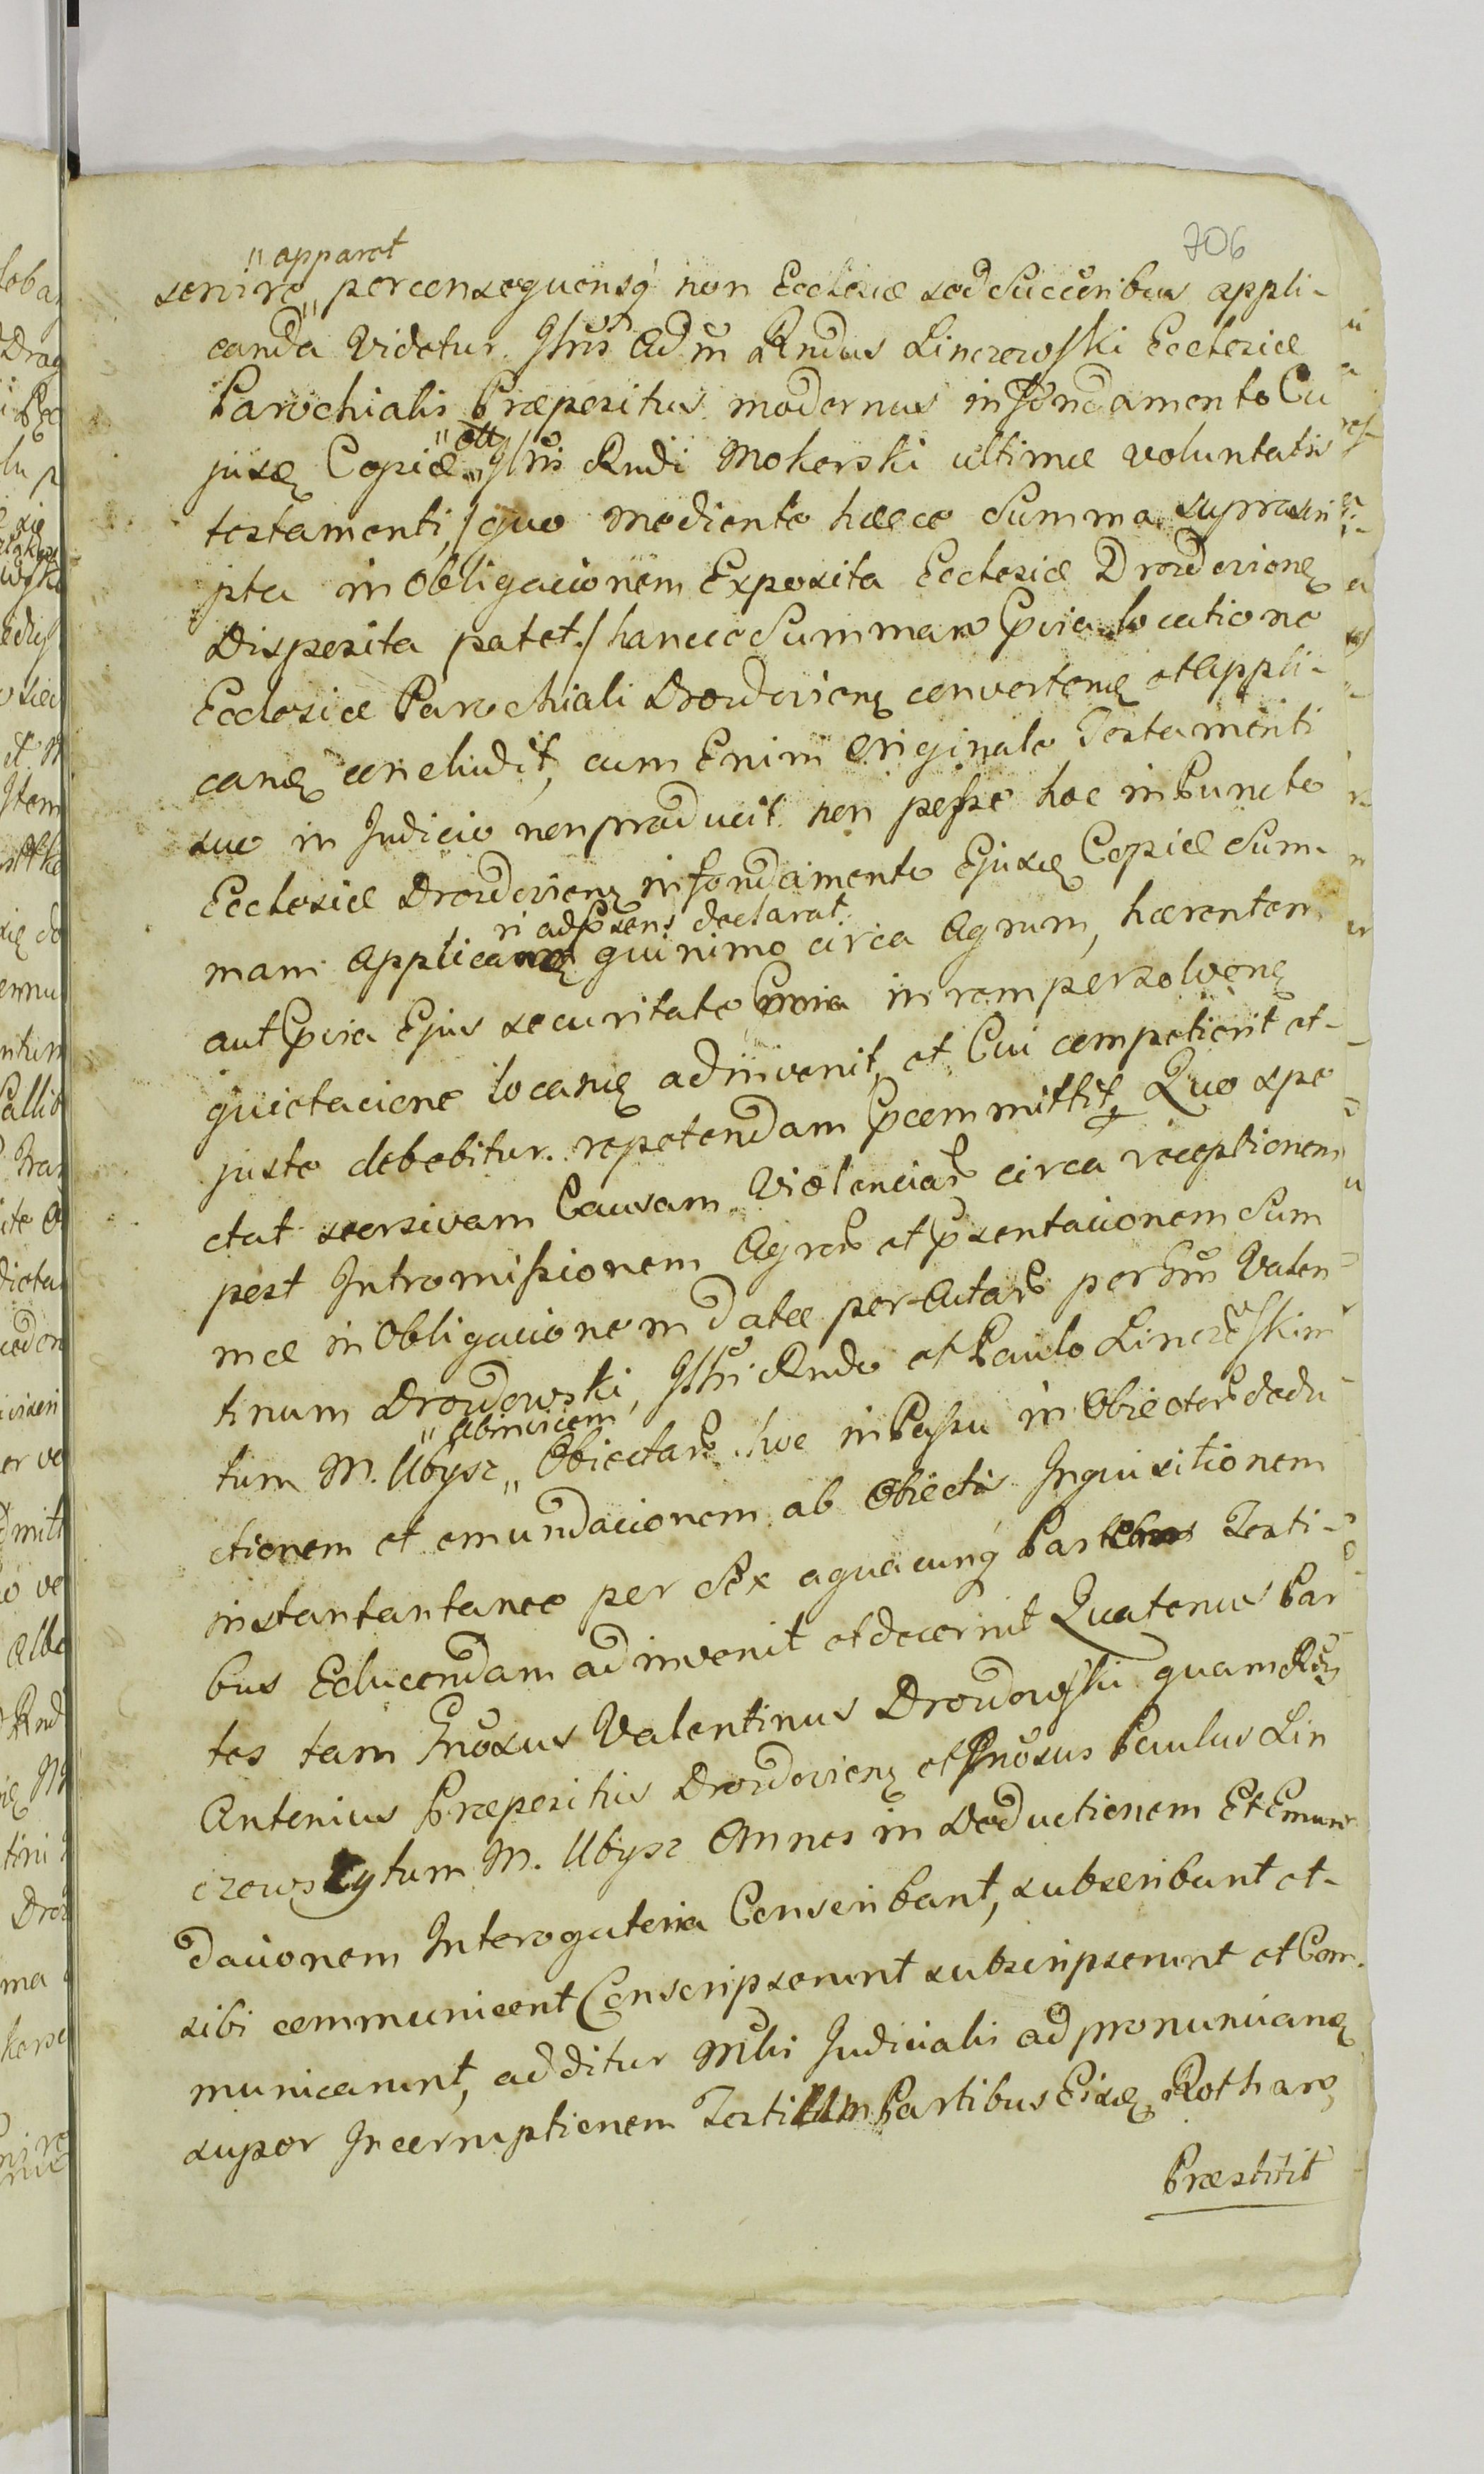 706
"apparet
servire" perconsequensq non Ecclesiæ sed Succeribus appli-
canda Videtur. Illris Adm Rndus Linczewski Ecclesiæ
Parochialis Præpositus modernus in fondamento Cu
jusq Copiæ " Illris Rndi Mokerski ultimæ voluntatis
testamenti, /quo mediente hæcce Summa suprascri
pta in Obligacionem Exposita Ecclesiæ Drozdoviensq
Disposita patet./ hancce Summam locatione
Ecclesiæ Parochiali Drozdoviensq convertenq et appli-
canq concludit, cum Enim Originale Testamenti
suo in Judicio non producit non posse hoc in Puncto
Ecclesiæ Drozdoviensq in fondamento Ejusq Copiæ Sum-
ri ad Præsens declarat
mam applica quinimo circa Agrum, hærentem
aut Ejus securitate in rem persolvenq
quietacione locanq adinvenit, et Cui competierit et-
juste debebitur. repetendam committit, Quo spe
ctat seorsivam Causam Violenciar circa receptionem
post Intromissionem Agror et Præsentacionem Sum
mæ in Obligacionem datæ per Actar per Valen
tinum Drozdowski, Illri Rndo et Paulo Linczeskim
"abinvicem
tum M. Ubysz" Obiectar. hoc in Passu in Obiector dedu
ctionem et emundacionem ab Obiectis Inquisitionem
instantantanee per Sex aquacunq Testi-
bus Educendam adinvenit et decernit Quatenus Par
tes tam Gnosus Valentinus Drozdowski quam Rdus
Antonius Præpositus Drozdoviensq et Gnosus Paulus Lin
czewski tum M. Ubysz Omnes in Deductionem Et Emun
dacionem Interogatoria Conscribant, subscribant et-
sibi communicent Conscripserunt subscripserunt et Com-
municarunt, additur Mlri Judicialis ad pronunciandq
super Incorruptionem Testium Partibus Eisq Rothar,
Præstitit